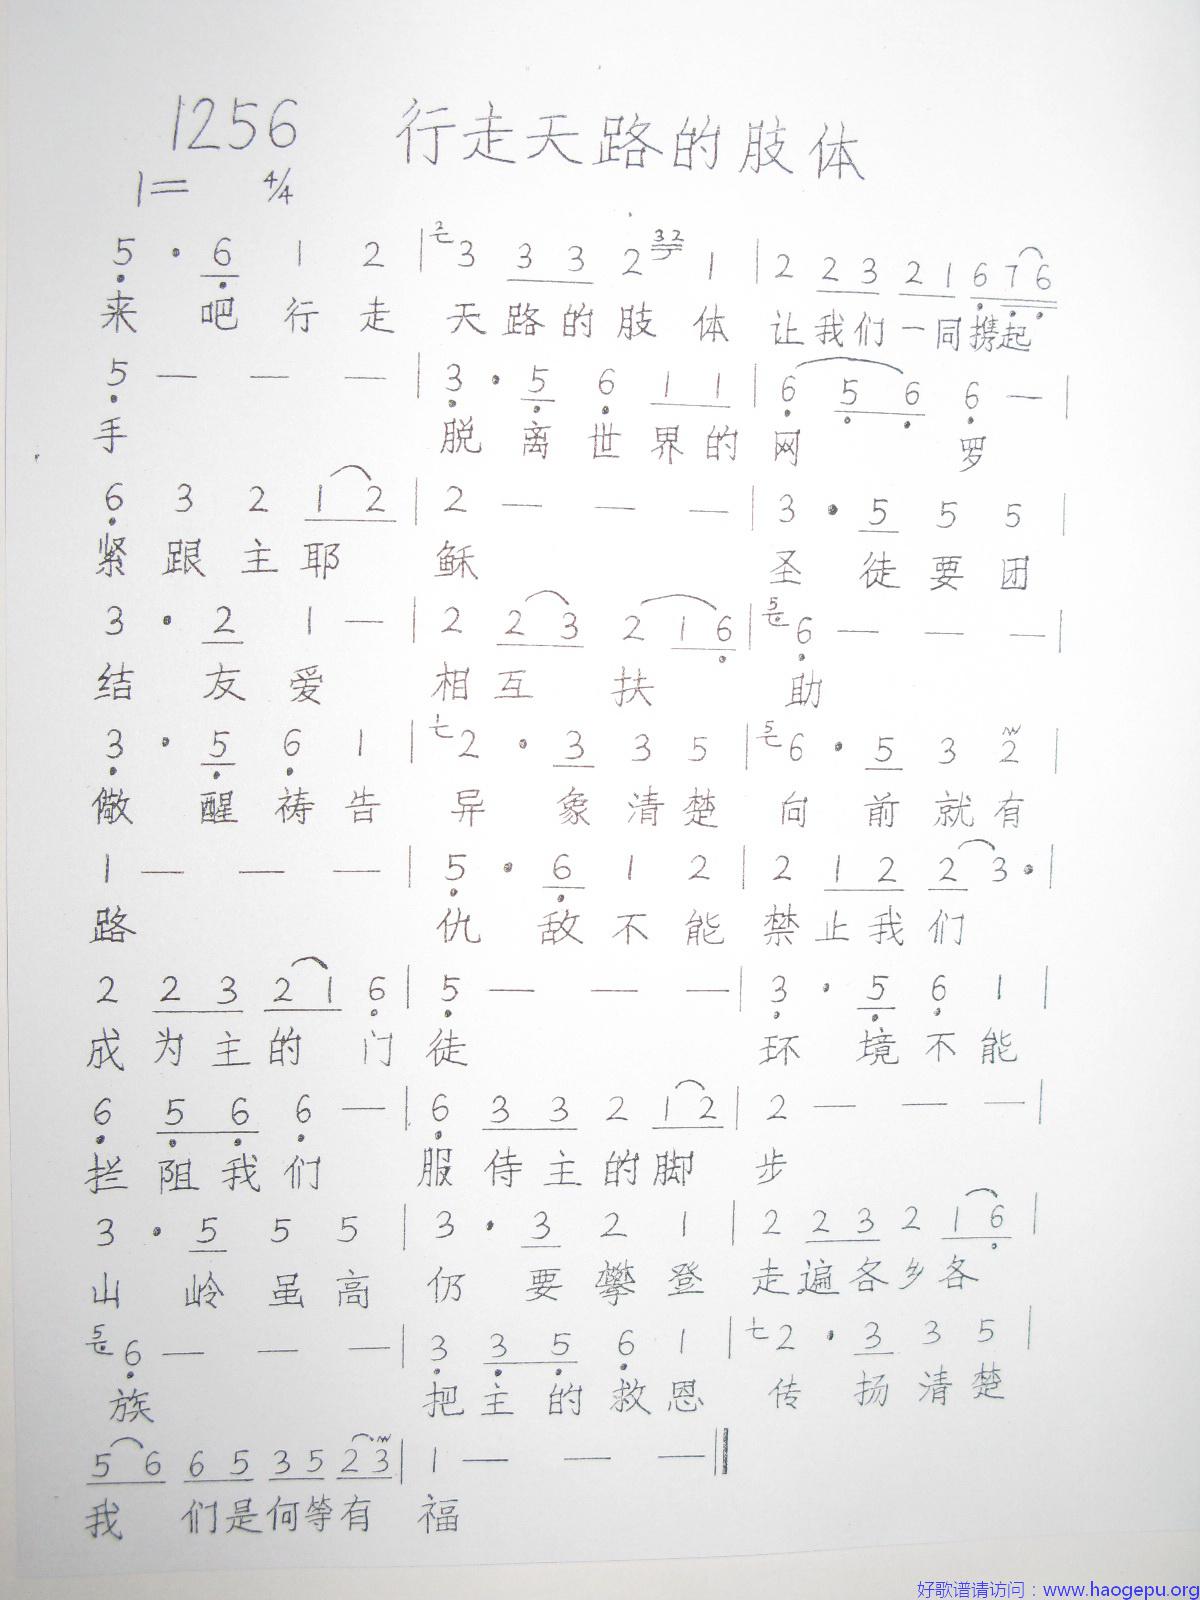 1256 行走天路的肢体
1= 4/4
5 · 6 1 2 | 2 3 3 3 2 32 1 | 2 2 3 2 1 6 7 6
来 吧 行 走 天 路 的 肢 体 让 我 们 一 同 携 起
5 — — — | 3 · 5 6 1 1 | 6 5 6 6 — |
手 脱 离 世 界 的 网 罗
6 3 2 1 2 | 2 — — — | 3 · 5 5 5 |
紧 跟 主 耶 稣 圣 徒 要 团
3 · 2 1 — | 2 2 3 2 1 6 | 5 6 — — — |
结 友 爱 相 互 扶 助
3 · 5 6 1 | 2 · 3 3 5 | 5 6 · 5 3 2 |
儆 醒 祷 告 异 象 清 楚 向 前 就 有
1 — — — | 5 · 6 1 2 | 2 1 2 2 3 · |
路 仇 敌 不 能 禁 止 我 们
2 2 3 2 1 6 | 5 — — — | 3 · 5 6 1 |
成 为 主 的 门 徒 环 境 不 能
6 5 6 6 — | 6 3 3 2 1 2 | 2 — — — |
拦 阻 我 们 服 侍 主 的 脚 步
3 · 5 5 5 | 3 · 3 2 1 | 2 2 3 2 1 6 |
山 岭 虽 高 仍 要 攀 登 走 遍 各 乡 各
5 6 — — — | 3 3 5 6 1 | 2 · 3 3 5 |
族 把 主 的 救 恩 传 扬 清 楚
5 6 6 5 3 5 2 3 | 1 — — — ‖
我 们 是 何 等 有 福
好歌谱请访问：www.haogepu.org